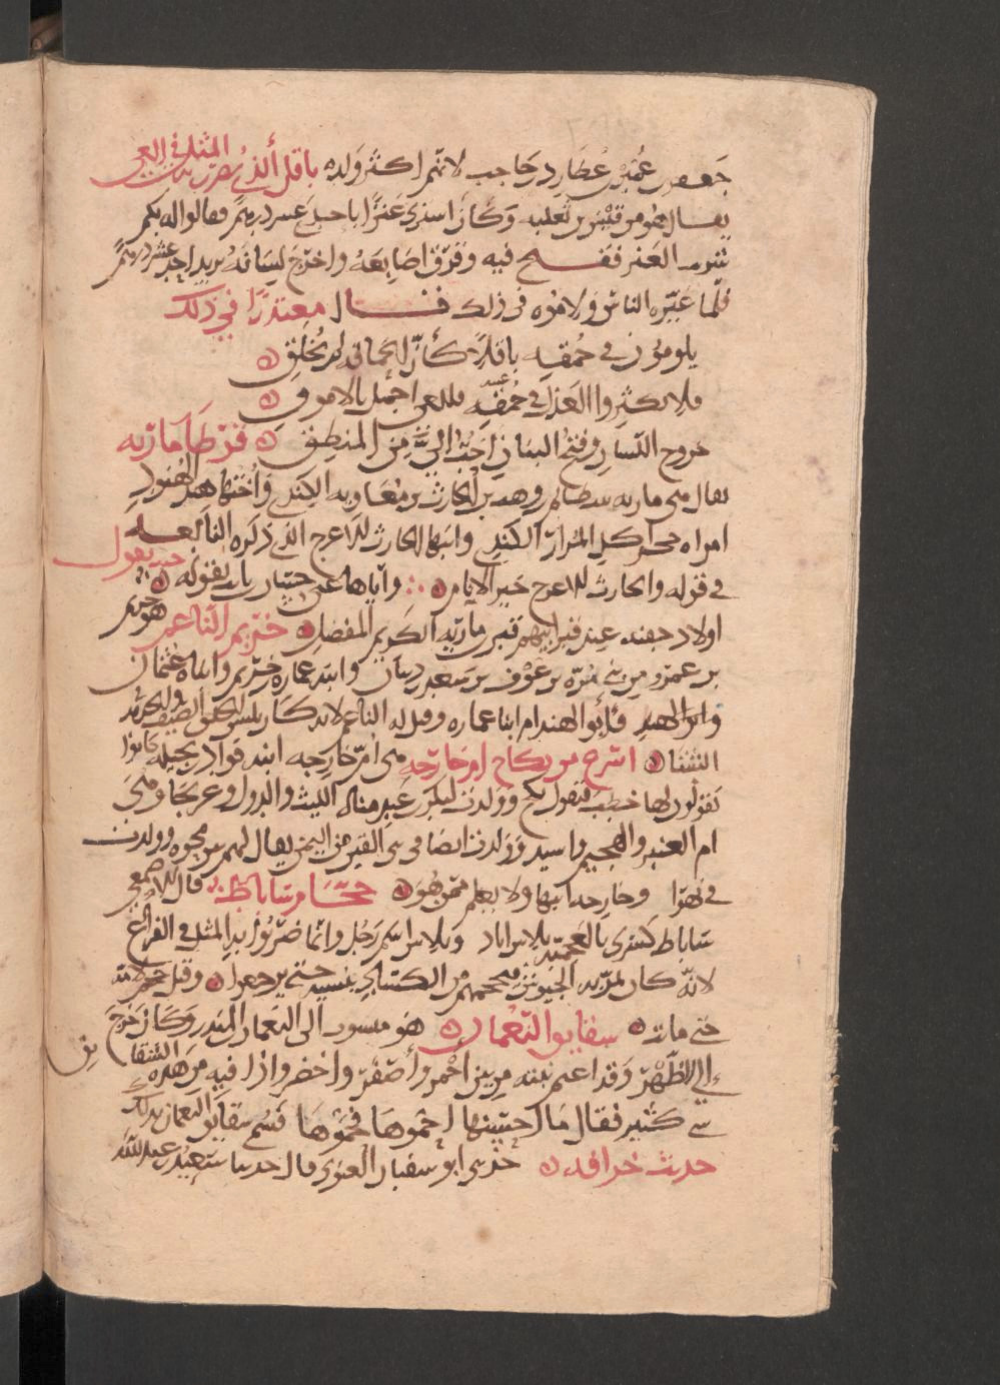 جعفر عمير عطارد حاجب لانهم اكثر ولده باقل الذي يضرب به المثل في العي
يقال هو من قيس بن ثعلبة وكان اشترى عنزًا باحد عشر درهمًا فقالوا له بكم
العنز ففتح فيه وفرّق اصابعه واخرج لسانه يريد احد عشر درهمًا
فلما عيّره الناس ولاموه في ذلك قال معتذرًا في ذلك
يلومون في حمقه باقلًا كأن الحماقة لم تخلق
فلا تكثروا العذل في حمقه فللعي اجمل بالاموق
خروج اللسان وفتح البنان احب الي من المنطق قرطا مارية
يقال هي مارية بنت ظالم وهب بن الحارث بن معاوية الكندي واختها هند الهنود
امراة حجر اكل المرار الكندي وابنها الحارث الاعرج الذي ذكره النابغة
في قوله والحارث الاعرج خير الانام واياها عنى حسان بن ثابت بقوله حيث يقول
اولاد جفنة عند قبر ابيهم قبر ابن مارية الكريم المفضل خريم الناعم هو خريم
بن عمرو من بني مرة بن عوف بن سعد بن ذبيان وابنه عمارة بن خريم وابناه عثمان
وابو الهيذام فابو الهيذام ابنا عمارة وقيل له الناعم لانه كان يلبس الخلق في الصيف والجديد
في الشتا اسرع من نكاح ام خارجة هي ام خارجة ابنة قداد بجيلة كانوا
يقولون لها خطب فتقول نكح وولدت لبكر بن عبد مناة الليث والدول وعريجا وهي
ام العنبر والهجيم واسيد وولدت ايضا في بني القين من اليمن يقال لهم وولدت
في بهرا وخارجة ابنها ولا يعلم ممن هو حجام ساباط قال الاصمعي
ساباط كسرى بالعجمية بلاس اباد وبلاس اسم رجل وانما ضربوا به المثل في الفراغ
لانه كان تمر به الجيوش فيحجمهم من الكساد بنسيئة حتى يرجعوا وقيل حجم امه
حتى ماتت شقايق النعمان هو منسوب الى النعمان بن المنذر وكان خرج
الى الظهر وقد اعتم نبته من بين احمر واصفر واخضر واذا فيه من هذه الشقايق
شي كثير فقال ما احسنها احموها فحموها فسمي شقايق النعمان بذلك
حديث خرافة حدثني ابو سفيان الغنوي قال حدثنا سعيد بن عبد الله